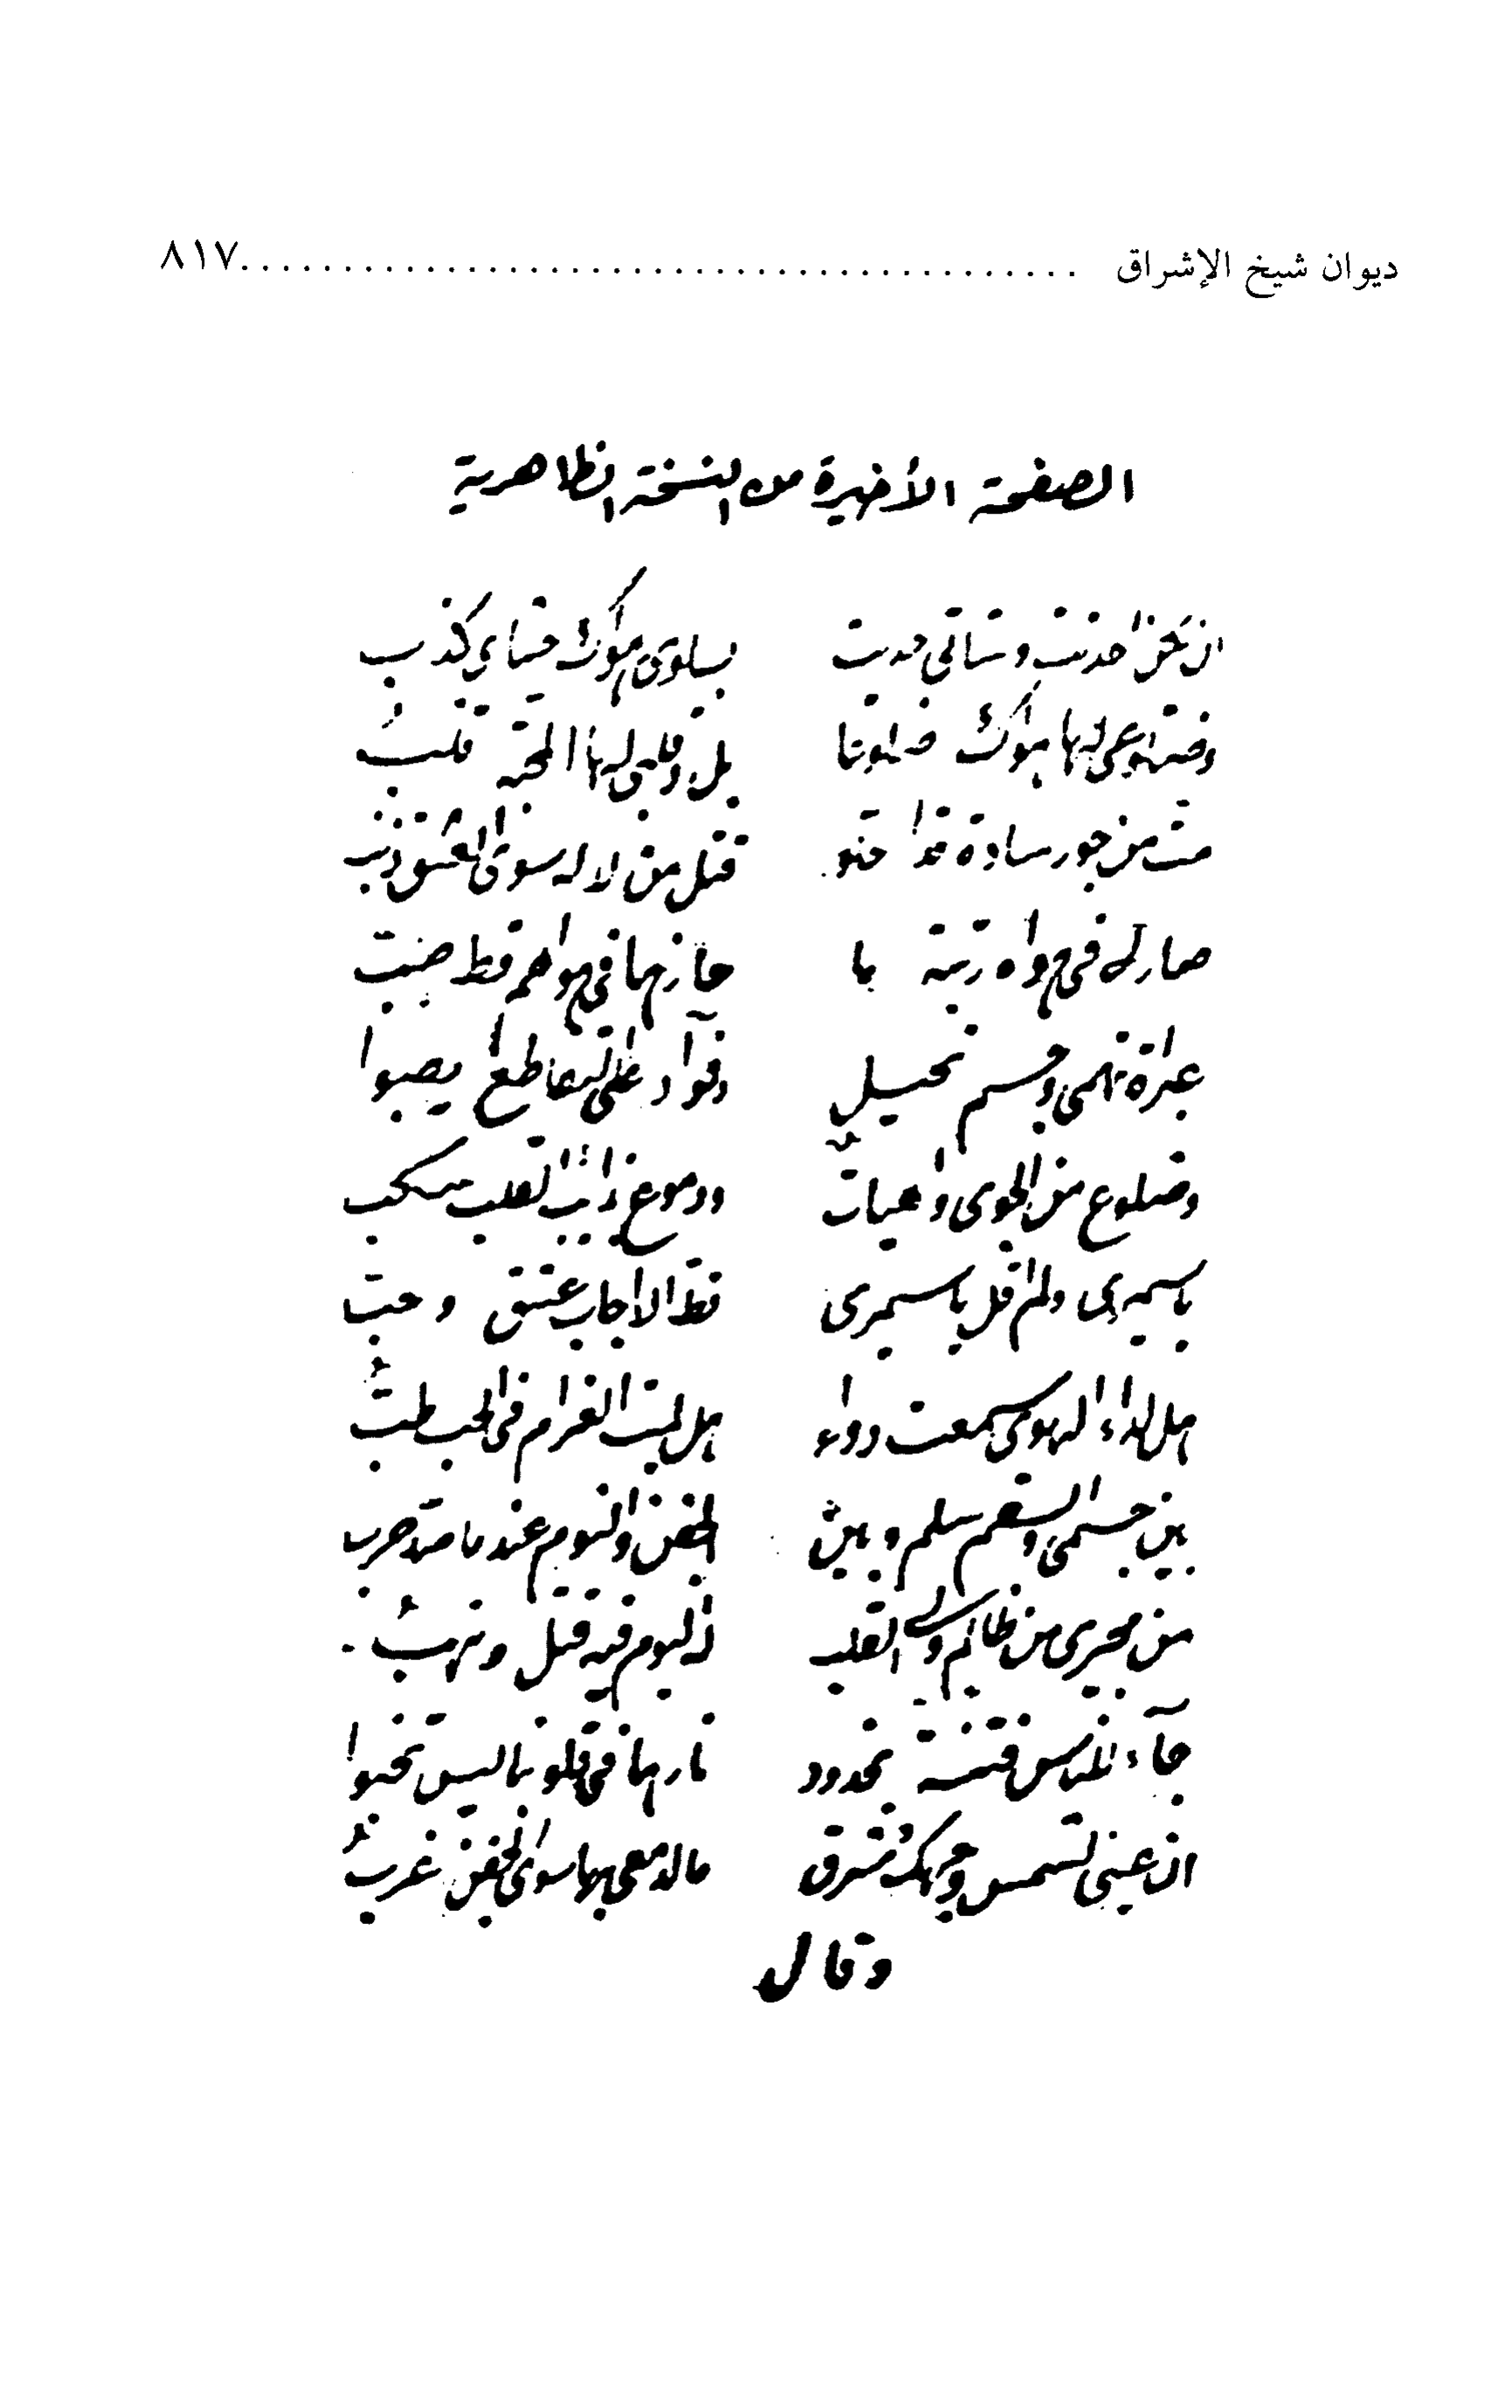 ديوان شيخ الإشراق ........................................ ٨١٧
الصفحة الأخيرة من النسخة الظاهرية
ان تكن احدثت وشاتى حديث بسلوى هواك حشاى كذب
هواك بل وقلبى لها المحبة قلب
مت من جور سادة قتل من لا له سوى العشق ذنب
صار لى فى هواه رتبة ما حازها فى هواهم قط صب
عبرة تهمى وجسم نحيل وفوآد على التقاطع يصبوا
وضلوع من الجوى واهيات ودموع ذائب القلب سكب
ياسميرى ولم اقل ياسميرى قط الا اجاب عشق وحب
هل لداء الهوى سمعت دواء هل لميت الغرام فى الحب طب
بين جسمى والسقم سلم وبين الجفن والنوم عند ما صد حرب
من مجيرى من ظالم القلب اليوم فيه قتل ونهب
جآء للناس فتنة بخدود نارها فى قلوبنا ليس تخبوا
ان عينى لشمس وجهك مشرق ما لدمعى بها سوى الجفن غرب
وقال